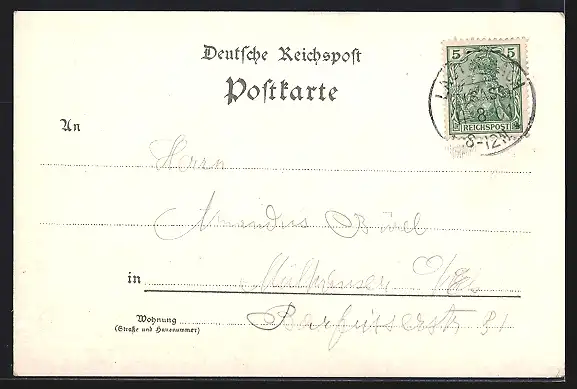 Deutsche Reichspost
Postkarte
5 5
REICHSPOST
8-12
An
Herrn
Amandus
in Mülhausen i/Els.
Wohnung
(Straße und Hausnummer)
Barfüsserstr 31